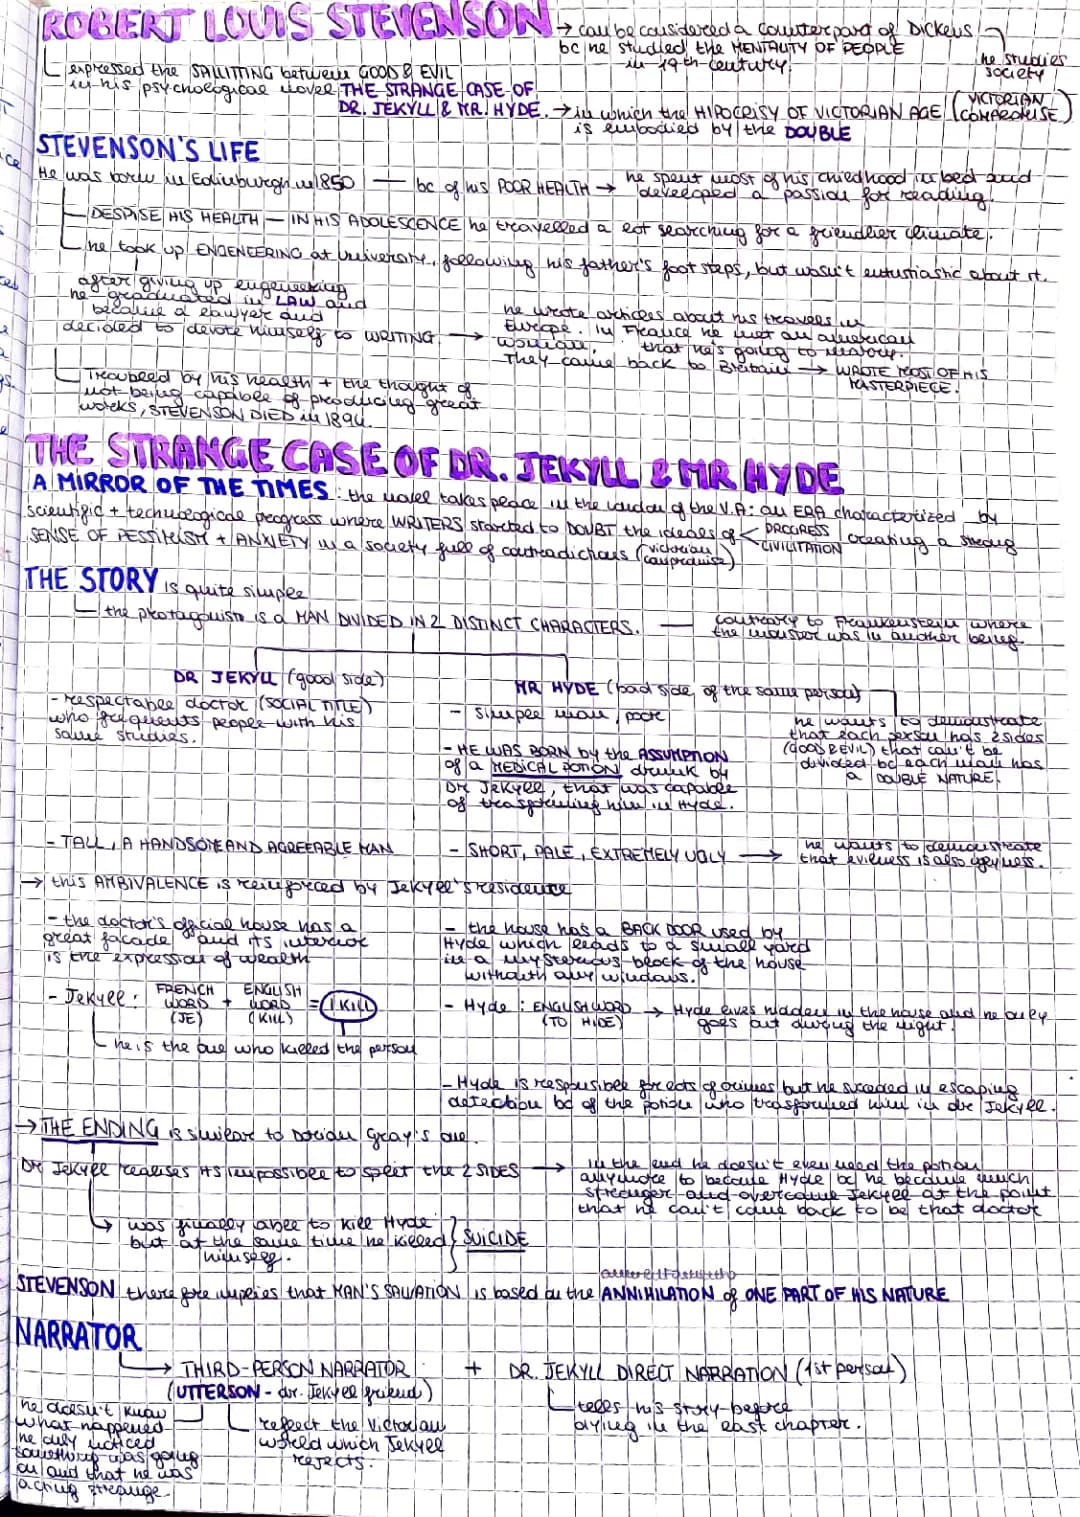 ROBERT LOUIS STEVENSON → can be considered a counterpart of Dickens
bc he studied the MENTALITY OF PEOPLE
in 19th century.
he studies
society
expressed the SALITTING between GOOD & EVIL
in his psychological novel THE STRANGE CASE OF
DR. JEKYLL & MR. HYDE. → in which the HIPOCRISY OF VICTORIAN AGE (VICTORIAN COMPROMISE)
is embodied by the DOUBLE
STEVENSON'S LIFE
He was born in Edinburgh in 1850 — bc of his POOR HEALTH → he spent most of his childhood in bed and
developed a passion for reading.
DESPISE HIS HEALTH — IN HIS ADOLESCENCE he travelled a lot searching for a friendlier climate.
he took up ENGENEERING at University, following his father's foot steps, but wasn't entustiastic about it.
after giving up engeneering
he graduated in LAW and
became a lawyer and
decided to devote himself to WRITING. →
he wrote articles about his travels in
Europe. In France he met an american
woman, that he's going to marry.
They came back to Britain → WROTE MOST OF HIS
MASTERPIECE.
Troubled by his health + the thought of
not being capable of producing great
works, STEVENSON DIED in 1894.
THE STRANGE CASE OF DR. JEKYLL & MR HYDE
A MIRROR OF THE TIMES: the novel takes place in the London of the V.A: an ERA characterized by
scientific + technological progress where WRITERS started to DOUBT the ideals of < PROGRESS
CIVILITATION
creating a strong
SENSE OF PESSIMISM + ANXIETY in a society full of contradictions (victorian compromise)
THE STORY is quite simple
the protagonist is a MAN DIVIDED IN 2 DISTINCT CHARACTERS. — contrary to Frankenstein where
the monster was in another being.
DR JEKYLL (good side)
- respectable doctor (SOCIAL TITLE)
who frequents people with his
same studies.
MR HYDE (bad side of the same person)
- simple man, poor
- HE WAS BORN by the ASSUMPTION
of a MEDICAL POTION drunk by
Dr Jekyll, that was capable
of trasforming him in Hyde.
he wants to demonstrate
that each person has 2 sides
(GOOD & EVIL) that can't be
divided bc each man has
a DOUBLE NATURE.
- TALL, A HANDSOME AND AGREEABLE MAN
- SHORT, PALE, EXTREMELY UGLY → he wants to demonstrate
that evilness is also uglyness.
→ this AMBIVALENCE is reinforced by Jekyll's residence
- the doctor's official house has a
great facade and its interior
is the expression of wealth
- the house has a BACK DOOR used by
Hyde which leads to a small yard
in a mysterious block of the house
without any windows.
- Jekyll: FRENCH WORD (JE) + ENGLISH WORD (KILL) = I KILL
he is the one who killed the person
- Hyde: ENGLISH WORD (TO HIDE) → Hyde lives hidden in the house and he only
goes out during the night.
- Hyde is responsible for acts of crimes but he succeed in escaping
detection bc of the potion who trasformed him in dr Jekyll.
→ THE ENDING is similar to Dorian Gray's one.
Dr Jekyll realises its impossible to split the 2 SIDES → in the end he doesn't even need the potion
anymore to become Hyde bc he became much
stronger and overcame Jekyll at the point
that he can't come back to be that doctor
was finally able to kill Hyde
but at the same time he killed
himself.
SUICIDE
STEVENSON therefore implies that MAN'S SALVATION is based on the ANNIHILATION of ONE PART OF HIS NATURE
NARRATOR
→ THIRD-PERSON NARRATOR + DR. JEKYLL DIRECT NARRATION (1st person)
(UTTERSON - dr. Jekyll friend)
he doesn't know
what happened
he only noticed
something was going
on and that he was
acting strange.
reflect the Victorian
world which Jekyll
rejects.
tells his story before
dying in the last chapter.